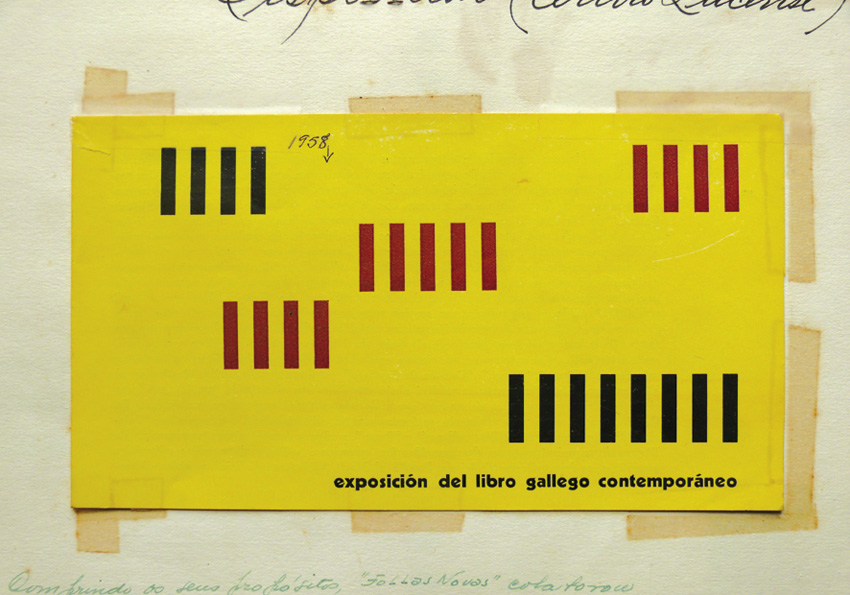 (Centro Lucense)
1958
exposición del libro gallego contemporáneo
Comprindo os seus propósitos, "Follas Novas" colaborou